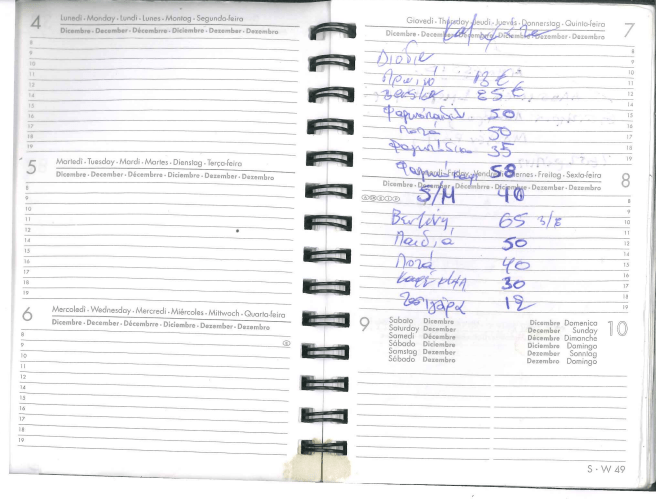 4 Lunedì - Monday - Lundi - Lunes - Montag - Segunda-feira
Dicembre - December - Décembre - Diciembre - Dezember - Dezembro
8
9
10
11
12
13
14
15
16
17
18
19
5 Martedì - Tuesday - Mardi - Martes - Dienstag - Terça-feira
Dicembre - December - Décembre - Diciembre - Dezember - Dezembro
8
9
10
11
12
13
14
15
16
17
18
19
6 Mercoledì - Wednesday - Mercredi - Miércoles - Mittwoch - Quarta-feira
Dicembre - December - Décembre - Diciembre - Dezember - Dezembro
8
9
10
11
12
13
14
15
16
17
18
19
Giovedì - Thursday - Jeudi - Jueves - Donnerstag - Quinta-feira 7
Dicembre - December - Décembre - Diciembre - Dezember - Dezembro
Διόδια
Πρωινό 13 €
25 €
50
Ποτά 50
35
58
Venerdì - Friday - Vendredi - Viernes - Freitag - Sexta-feira 8
Dicembre - December - Décembre - Diciembre - Dezember - Dezembro
S/M 40
Βενζίνη 65
Παιδιά 50
Ποτά 40
30
Τσιγάρα 12
9 Sabato Dicembre
Saturday December
Samedi Décembre
Sábado Diciembre
Samstag Dezember
Sábado Dezembro
Dicembre Domenica 10
December Sunday
Décembre Dimanche
Diciembre Domingo
Dezember Sonntag
Dezembro Domingo
S - W 49